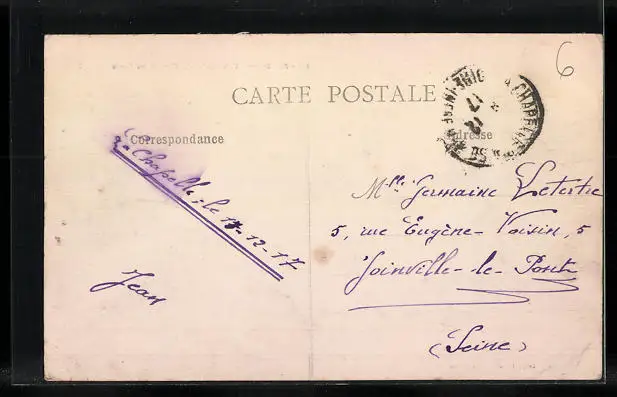 6
CARTE POSTALE
Correspondance
Adresse
La Chapelle-le 17-12-17
Jean
Mlle Germaine Letertre
5, rue Eugène-Voisin, 5
Joinville-le-Pont
(Seine)